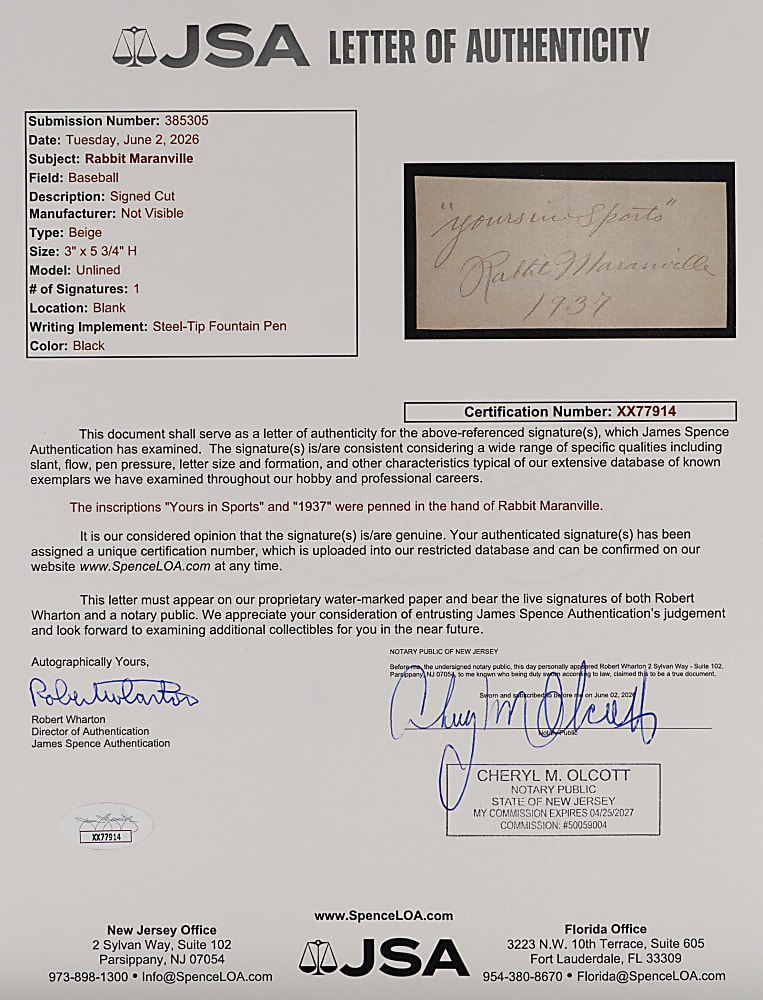 JSA LETTER OF AUTHENTICITY
Submission Number: 385305
Date: Tuesday, June 2, 2026
Subject: Rabbit Maranville
Field: Baseball
Description: Signed Cut
Manufacturer: Not Visible
Type: Beige
Size: 3" x 5 3/4" H
Model: Unlined
# of Signatures: 1
Location: Blank
Writing Implement: Steel-Tip Fountain Pen
Color: Black
"yours in Sports"
Rabbit Maranville
1937
Certification Number: XX77914
This document shall serve as a letter of authenticity for the above-referenced signature(s), which James Spence
Authentication has examined. The signature(s) is/are consistent considering a wide range of specific qualities including
slant, flow, pen pressure, letter size and formation, and other characteristics typical of our extensive database of known
exemplars we have examined throughout our hobby and professional careers.
The inscriptions "Yours in Sports" and "1937" were penned in the hand of Rabbit Maranville.
It is our considered opinion that the signature(s) is/are genuine. Your authenticated signature(s) has been
assigned a unique certification number, which is uploaded into our restricted database and can be confirmed on our
website www.SpenceLOA.com at any time.
This letter must appear on our proprietary water-marked paper and bear the live signatures of both Robert
Wharton and a notary public. We appreciate your consideration of entrusting James Spence Authentication's judgement
and look forward to examining additional collectibles for you in the near future.
Autographically Yours,
Robert Wharton
Robert Wharton
Director of Authentication
James Spence Authentication
NOTARY PUBLIC OF NEW JERSEY
Before me, the undersigned notary public, this day personally appeared Robert Wharton 2 Sylvan Way - Suite 102,
Parsippany, NJ 07054, to me known who being duly sworn according to law, claimed this to be a true document.
Sworn and subscribed to before me on June 02, 2026
Notary Public
Cheryl M Olcott
CHERYL M. OLCOTT
NOTARY PUBLIC
STATE OF NEW JERSEY
MY COMMISSION EXPIRES 04/25/2027
COMMISSION: #50059004
XX77914
www.SpenceLOA.com
New Jersey Office
2 Sylvan Way, Suite 102
Parsippany, NJ 07054
973-898-1300 • Info@SpenceLOA.com
JSA
Florida Office
3223 N.W. 10th Terrace, Suite 605
Fort Lauderdale, FL 33309
954-380-8670 • Florida@SpenceLOA.com